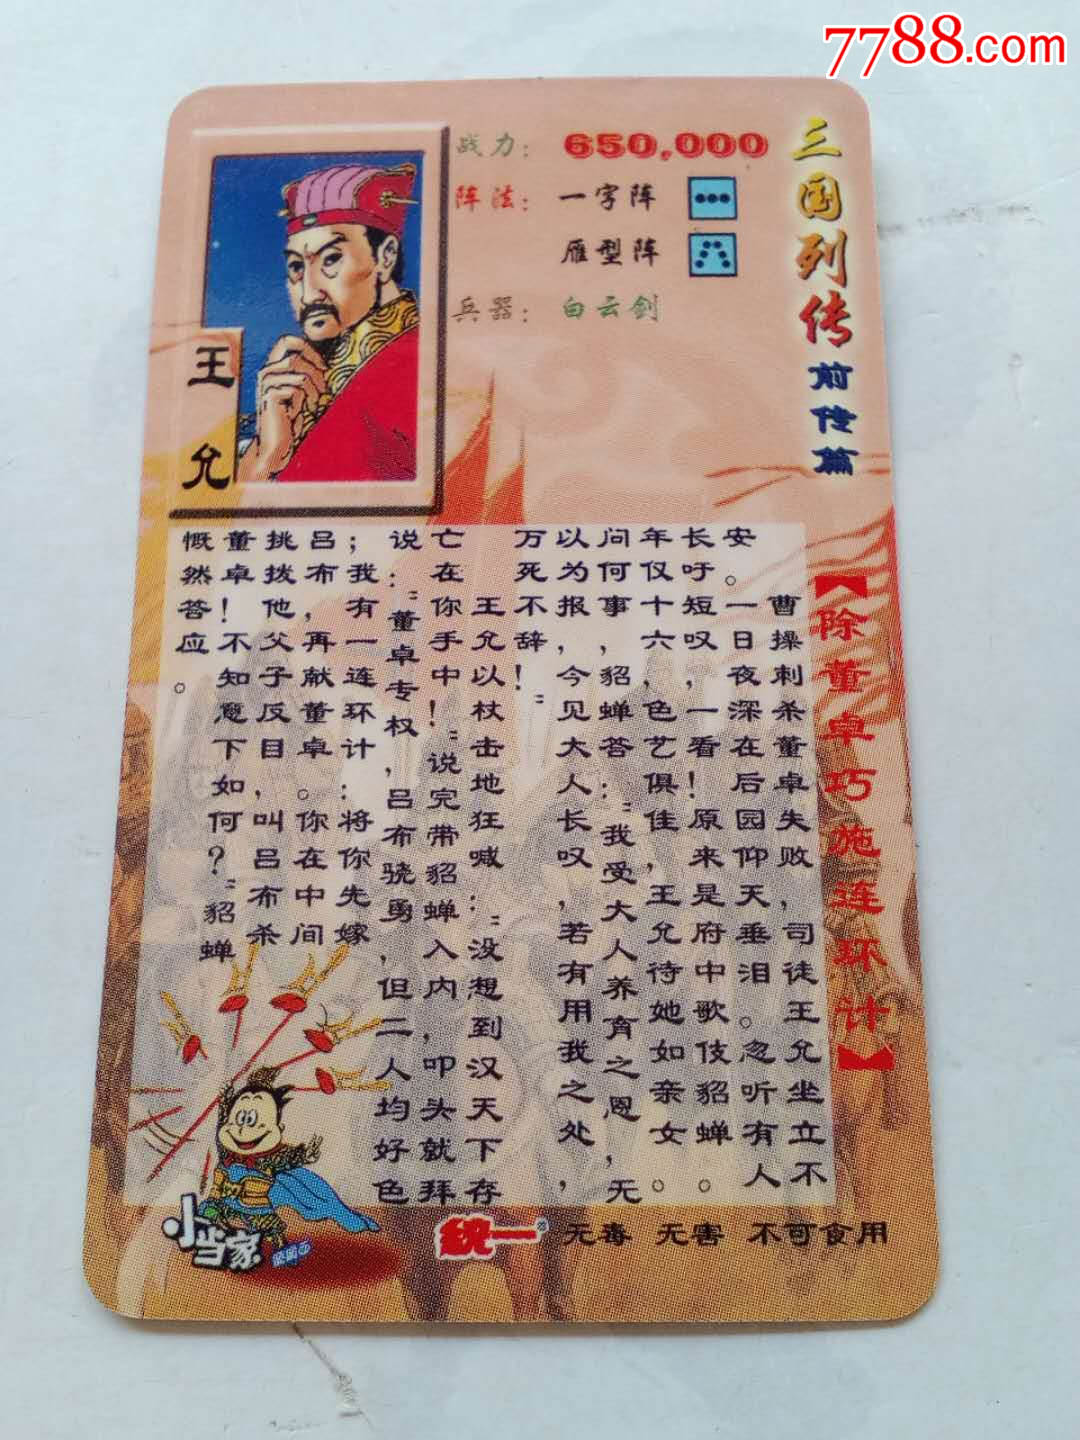 7788.com
三国列传 前传篇
战力： 650,000
阵法： 一字阵
雁型阵
兵器： 白云剑
王允
【除董卓巧施连环计】
曹操刺杀董卓失败，司徒王允坐立不
安。一日夜深在后园仰天垂泪。忽听有人
长吁短叹，一看！原来是府中歌伎貂蝉。
年仅十六，色艺俱佳，王允待她如亲女。
问何事，貂蝉答：“我受大人养育之恩，无
以为报，今见大人长叹，若有用我之处，
万死不辞！”
王允以杖击地狂喊：“没想到汉天下存
亡在你手中！”说完带貂蝉入内，叩头就拜
说：“董卓专权，吕布骁勇，但二人均好色
；我有一连环计：将你先嫁
吕布，再献董卓。你在中间
挑拨他，父子反目，叫吕布杀
董卓！不知意下如何？”貂蝉
慨然答应。
小当家
统一® 无毒 无害 不可食用